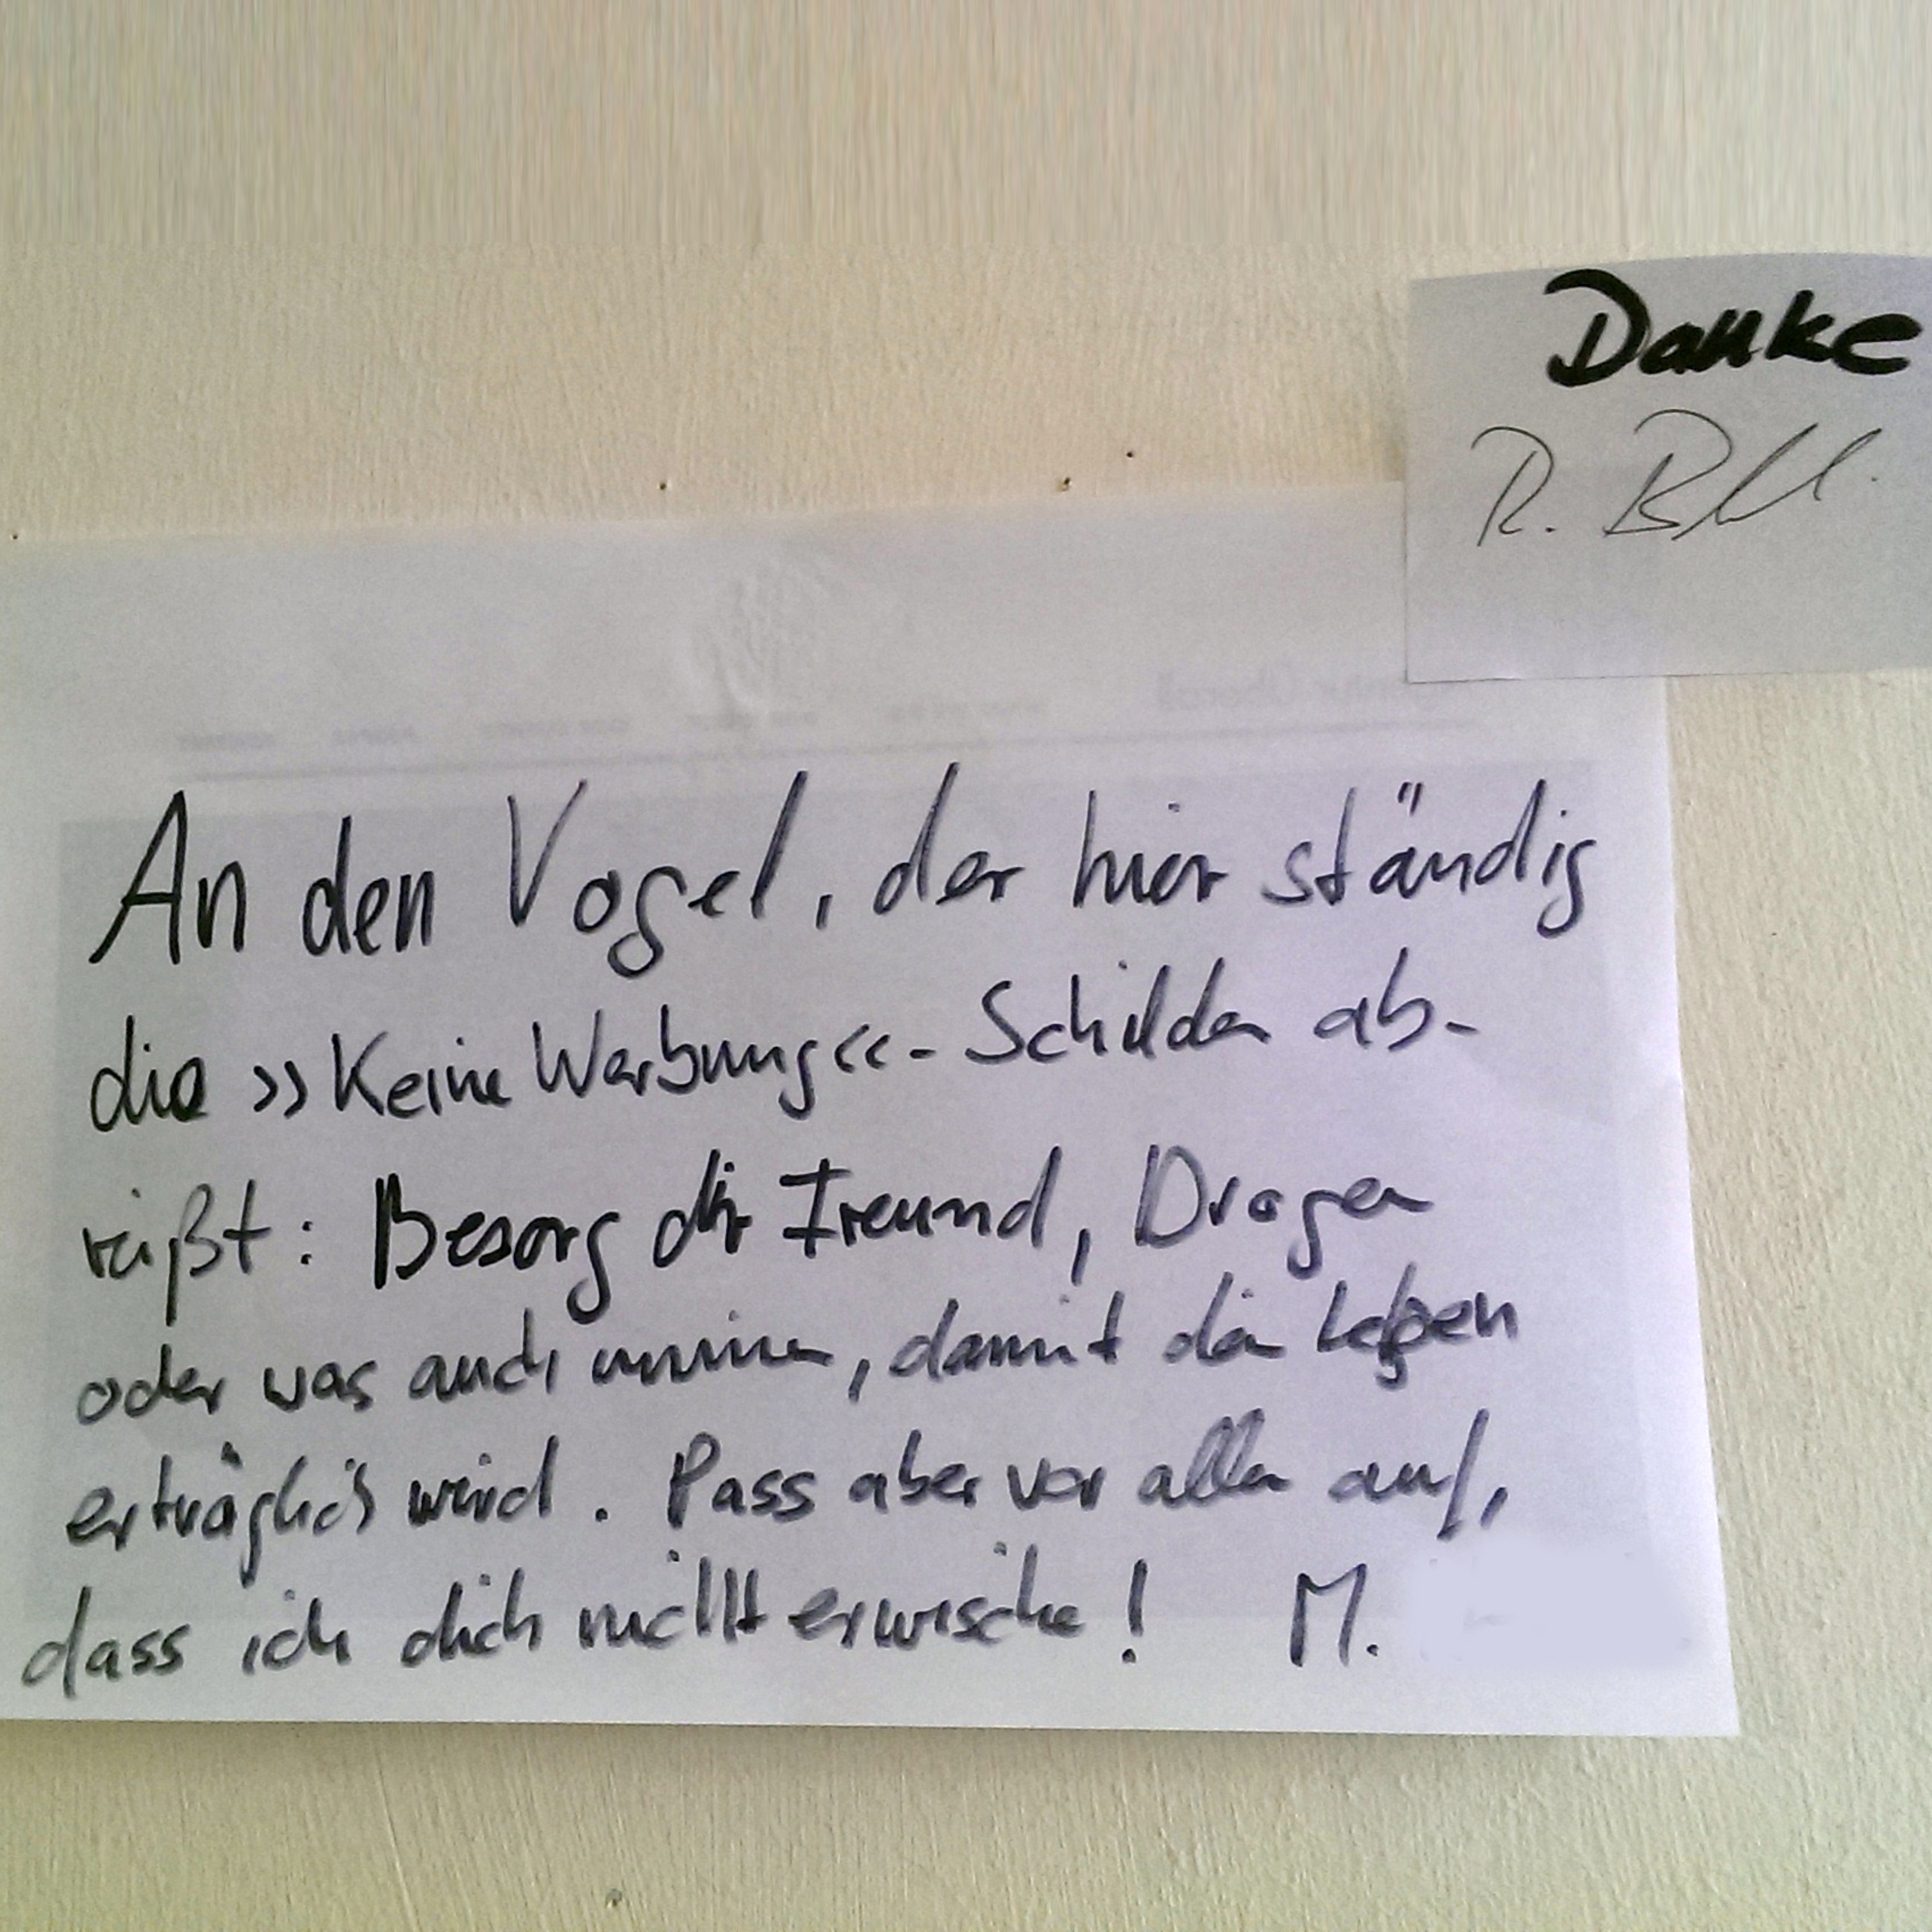 Danke
R.
An den Vogel, der hier ständig
die »Keine Werbung«-Schilder ab-
reißt: Besorg dir Freund, Drogen
oder was auch immer, damit dein Leben
erträglich wird. Pass aber vor allem auf,
dass ich dich nicht erwische! M.